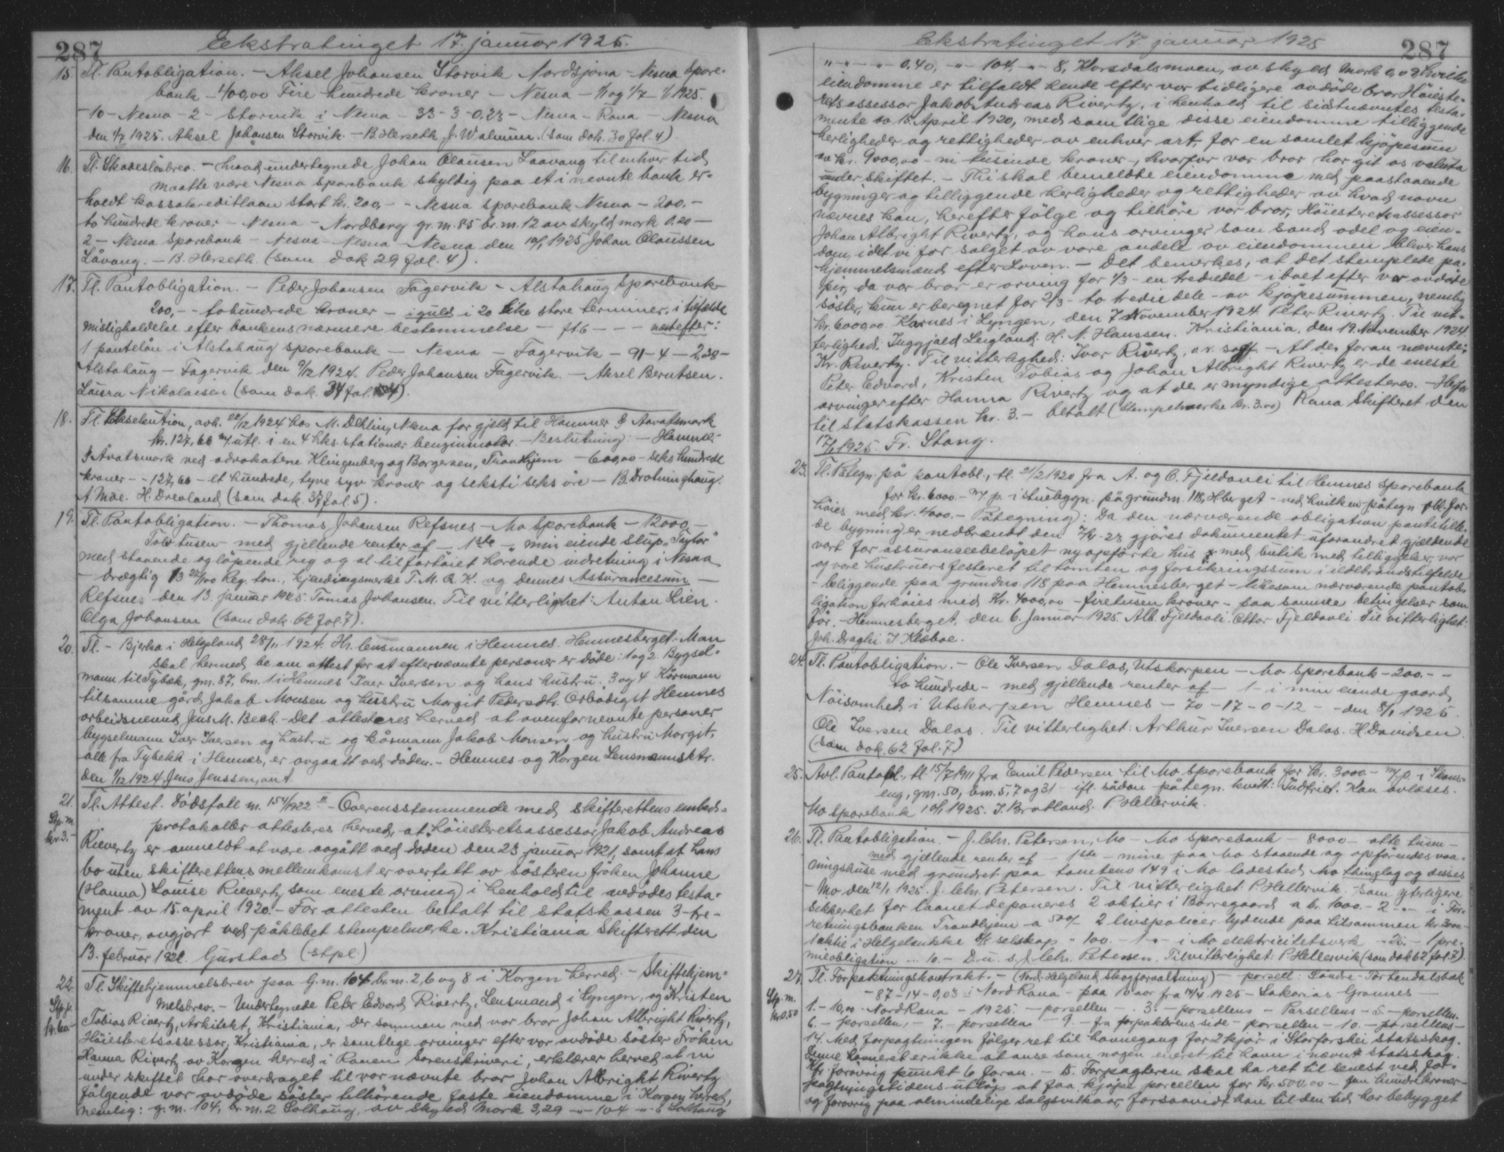 287
Ekstratinget 17. januar 1925.
15. Tl. Pantobligation. - Aksel Johansen Storvik Nordsjona - Nesna Spare-
bank - 400,00 Fire hundrede kroner - Nesna -
- 10 - Nesna - 2 - Storvik i Nesna - 33 - 3 - 0,23 - Nesna - Rana - Nesna
den 1/7 1925. Aksel Johansen Storvik. - B. Herseth, J. Walnum. (Sam dok. 30 fol. 4)
16. Tl. Skadesløsbrev. - hvad undertegnede Johan Olausen Laavang til enhver tid
maatte være Nesna Sparebank skyldig paa et i nevnte bank er-
holdt kassakreditlaan stort kr. 200,- - Nesna Sparebank Nesna - 200,-
to hundrede kroner - Nesna - Nordberg gr. m. 85 br. m. 12 av skyld mark 0,20 -
2 - Nesna Sparebank - Nesna - Nesna - Nesna den 10/1 1925 Johan Olaussen
Låvang. - B. Herseth. (sam dok 29 fol. 4).
17. Tl. Pantobligation. - Peder Johansen Fagervik - Alstahaug Sparebank
200,- - tohundrede kroner - i guld i 20 like store terminer, i tilfælde
misligholdelse efter bankens nærmere bestemmelse - f. 16 - - - næstefter:
1 pantelån i Alstahaug sparebank - Nesna - Fagervik - 91 - 4 - 2,38 -
Alstahaug - Fagervik den 9/12 1924. Peder Johansen Fagervik. - Aksel Berntsen.
Laura Nikolaisen (sam dok. 34 fol. 4).
18. Tl. Eksekution, avh. 22/12 1924 hos M. Dehlin, Nesna for gjeld til Hammer & Aavatsmark
kr. 127,66 m/ utl. i en 4 hks. stationær benzinmotor - Beslutning: - Hammer
& Avatsmark ved advokatene Klingenberg og Borgersen, Trondhjem - 600,00 - seks hundrede
kroner - - 127,66 - et hundrede, tyve syv kroner og seksti seks øre - B. Drotninghaug.
N. Moe. H. Drevland (sam dok. 37 fol. 5).
19. Tl. Pantobligation. - Thomas Johansen Refsnes - Mo Sparebank - 12000,-
Tolv tusen - med gjeldende renter af - 1ste - min eiende slup "Taylor"
med staaende og løpende rig og al tilfartøiet hørende indretning i Nesna
- drægtig 13 Reg. ton., kjendingsmerke T. M. R. H. og dennes Assurancesum -
Refsnes den 13. januar 1925. Tomas Johansen. Til vitterlighet: Anton Lien
Olga Johansen (sam dok. 62 fol. 7).
20. Tl. - Bjerka i Helgeland 28/11 1924. Hr. Lensmannen i Hemnes. Hemnesberget. Man
skal hermed be om attest for at efternevnte personer er døde: 1 og 2 Bygsel-
mann til Tybæk, gm. 87, bm. 1 i Hemnes Iver Iversen og hans hustru. 3 og 4 Kårmann
til samme gård, Jakob Monsen og hustru Margit Pedersdtr. Ørbødigst Hemnes
arbeidsnemnd Jens M. Bech - Det attesteres herved at ovenfornevnte personer
bygselmann Iver Iversen og hustru og kårmann Jakob Monsen og hustru Margit,
alle fra Tybekk i Hemnes, er avgaatt ved døden. - Hemnes og Korgen Lensmannsktr.
den 1/12 1924. Jens Jenssen, aut.
21. Tl. Attest. Dødsfall nr. 154/1922 - Overensstemmende med skifterettens embeds-
protokoller attesteres herved, at høiesteretsassessor Jakob Andreas
Rivertz er anmeldt at være avgått ved døden den 23 januar 1921 samt at hans
bo uten skifterettens mellemkomst er overtatt av søsteren frøken Johanne
(Hanna) Louise Rivertz som eneste arving i henhold til avdødes testa-
ment av 15. april 1920. - For attesten betalt til statskassen 3 - tre -
kroner, avgjort ved påklebet stempelmerke. Kristiania Skifterett den
13. februar 1922. Gurstad (stpl.)
Stp. m.
kr. 3.-
22. Tl. Skiftehjemmelsbrev paa G. m. 104 br. m. 2, 6 og 8 i Korgen herred. - Skiftehjem-
melsbrev. - Undertegnede Peter Edvard Rivertz, Lensmand i Lyngen, og Kristen
Tobias Rivertz, Arkitekt, Kristiania, der sammen med vor bror Johan Albright Rivertz,
Høiesteretsassessor, Kristiania, er samtlige arvinger efter vor avdøde søster Frøken
Hanna Rivertz av Korgen herred i Ranen Sorenskriveri, erklærer herved at vi
under skiftet har overdraget til vor nævnte bror Johan Albright Rivertz
følgende vor avdøde søster tilhørende faste eiendomme i Korgen herred,
nemlig: g. m. 104, br. m. 2 Solhaug, av skyld mark 3,29 - 104 - 6 Solhaug
287
Ekstratinget 17. januar 1925
" " " 0,40, " " 104, " 8, Korsdalsmoen, av skyld mark 0,09 hvilke
eiendomme er tilfaldt hende efter vor tidligere avdøde bror Høieste-
retsassessor Jakob Andreas Rivertz, i henhold til sistnævntes testa-
mente av 15. April 1920, med samtlige disse eiendomme tilliggende
herligheder og rettigheder av enhver art, for en samlet kjøpesum
av kr. 9000,00 - ni tusende kroner -, hvorfor vor bror har git os valuta
under skiftet. - Thi skal bemeldte eiendomme med paastaaende
bygninger og tilliggende herligheder og rettigheder av hvad navn
nævnes kan, herefter følge og tilhøre vor bror, Høiesteretsassessor
Johan Albright Rivertz, og hans arvinger som sand odel og eien-
dom, idet vi for salget av vore andele av eiendommen bliver hans
hjemmelsmænd efter Loven. - Det bemerkes, at det stemplede pa-
pir, da vor bror er arving for 1/3 - en trediedel - i boet efter vor avdøde
søster, kun er beregnet for 2/3 - to tredie dele - av kjøpesummen, nemlig
kr. 6000,00 Karnes i Lyngen, den 7 November 1924 Peter Rivertz. Til vit-
terlighed: Inggjald Leigland. H. N. Hanssen. Kristiania, den 19. November 1924
Kr. Rivertz. Til vitterlighed: Ivar Rivertz, - At de foran nævnte:
Peter Edvard, Kristen Tobias og Johan Albright Rivertz er de eneste
arvinger efter Hanna Rivertz og at de er myndige attesteres. -
til statskassen kr. 3.- betalt (Stempelmerke kr. 3.00) Rana Skifteret den
17/1 1925. Fr. Stang.
23. Tl. Påtegn. på pantobl., tl. 21/2 1920 fra A. og O. Fjeldavli til Hemnes Sparebank
for kr. 6000.- m/ p. i huebygn. på grundn. 118, H.berget - ved hvilken påtegn. obl. for-
høies med kr. 4000.- Påtegning: Da den nærværende obligation pantstille-
de bygninger nedbrændt den 7/9-23 gjøres dokumentet uforandret gjældende
vort for assurancebeløpet nyopførte hus med butik med tilliggelser, vor
og vore hustruers festeret til tomten og forsikringssum i ildebrandstilfælde
- beliggende paa grundno. 118 paa Hemnesberget - likesom nærværende pantob-
ligation forhøies med kr. 4000,00 - firetusen kroner - paa samme betingelser som
før. - Hemnesberget, den 6. Januar 1925. Alb. Fjeldavli. Ottar Fjeldavli. Til vitterlighet:
Joh. Daghi. J. Klæboe.
24. Tl. Pantobligation. - Ole Iversen Dalås, Utskarpen - Mo Sparebank - 200.- -
to hundrede - med gjeldende renter af - 1 - i min eiende gaard
Nøisomhed i Utskarpen Hemnes - 70 - 17 - 0 - 12 - - den 8/1 1925.
Ole Iversen Dalas. Til vitterlighet: Arthur Iversen Dalas. H. Davidsen
(sam dok. 62 fol. 7)
25. Avl. Pantobl., tl. 15/7 1911 fra Emil Pedersen til Mo sparebank for kr. 3000.- m/ p. i
eng, gm. 50, bm. 5, 7 og 31 - ift. sådan påtegn. kvitt: Indfriet. Kan avlæses.
Mo Sparebank 10/1 1925. J. Bratland. P. Hellervik.
26. Tl. Pantobligation. - J. Chr. Petersen, Mo - Mo Sparebank - 8000 - otte tusen -
med gjeldende renter af - 1ste - mine paa Mo staaende og opførendes vaa-
ningshuse med grundret paa tomteno 149 i Mo ladested, Mo thinglag og disses
- Mo den 12/1 1925. J. Chr. Petersen. Til vitterlighet: P. Hellervik. - Som yderligere
sikkerhet for laanet deponeres 2 aktier i Borregaard a kr. 1000.- 2 - " - i For-
retningsbanken Trondhjem - a 500 2 livspoliser lydende paa tilsammen kr. 3000.-
1 aktie i Helgelandske selskap - 100. - 1 - - i Mo elektricitetsverk - 20. - 1 pre-
mieobligation - 10 - D.u.s. J. Chr. Petersen. Til vitterlighet: P. Hellervik (sam dok 62 fol. 7).
27. Tl. Forpaktningskontrakt. - (Nord Helgeland Skogforvaltning) - parsell -
- 87 - 14 - 0,03 i Nord Rana - paa 10 aar fra 14/4 1925 - Sakarias Grannes -
1. - 10,00 - Nord Rana - 1925. - porsellen - 3. - porsellens - Parsellens - 5 - porsellen.
6. - porsellen, - 7. - porsellen - 9. - fra forpakterens side - porsellen - 10. - porsellens -
14. Med forpagtningen følger ret til havnegang for 2 kjør i Storforshei statsskog.
Denne havneret er ikke at anse som nogen eneret til havn i nævnte statsskog.
Kfr. forøvrig punkt 6 foran. - 15. Forpagteren skal ha ret til senest ved for-
pagtningstidens utløp at faa kjøpe porcellen for kr. 500,00 - fem hundrede kroner -
og forøvrig paa almindelige salgsvilkaar, forsaavidt han til den tid har bebygget
Stp. m.
kr. 0,50